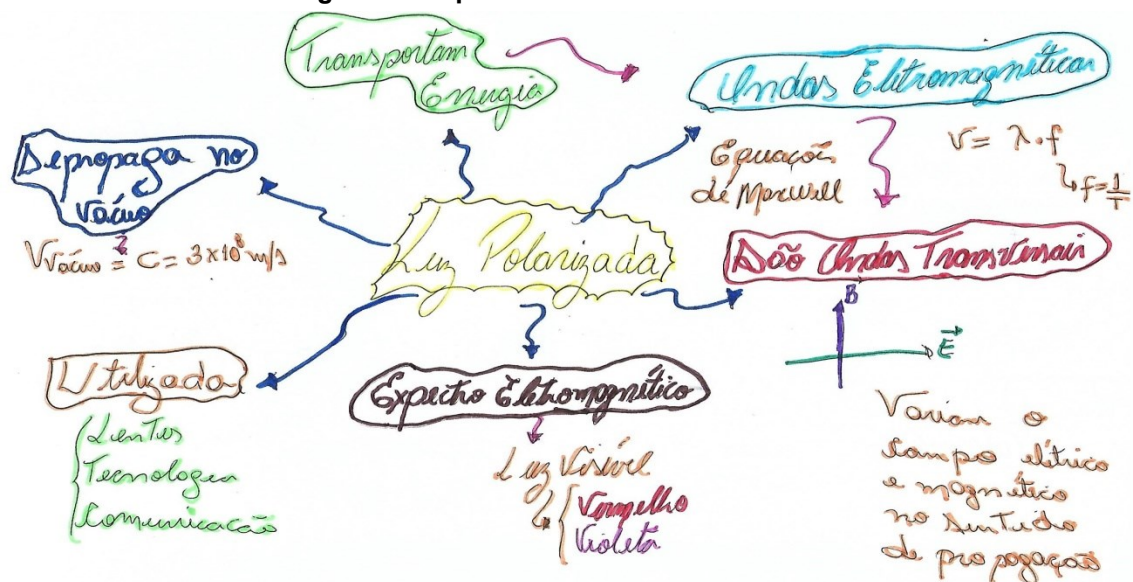 Transportam
Energia
Ondas Eletromagnéticas
Se propaga no
Vácuo
Vvácuo = C = 3x10⁸ m/s
Equações
de Maxwell
V = λ.f
↳ f = 1/T
Luz Polarizada
São Ondas Transversais
B
E⃗
Utilizada
Lentes
Tecnologia
Comunicação
Expectro Eletromagnético
Luz Visível
Vermelho
Violeta
Variam o
Campo elétrico
e magnético
no sentido
de propagação